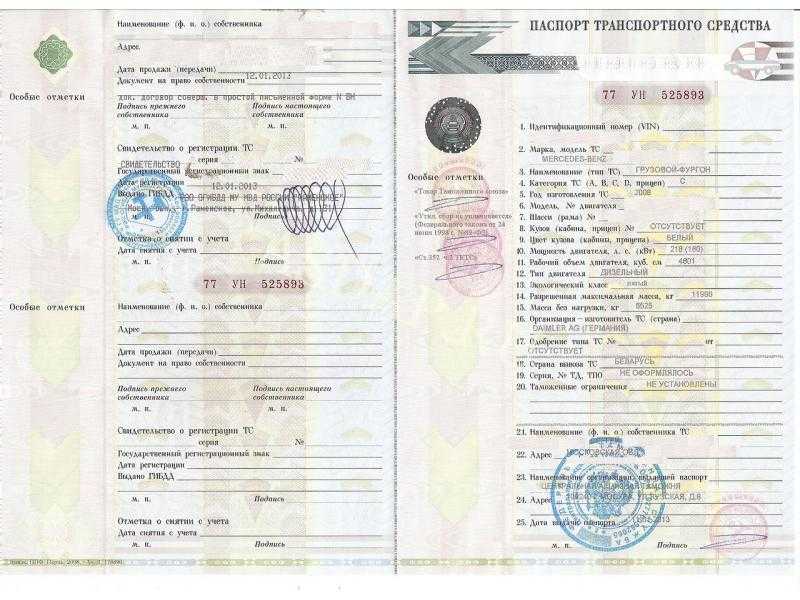 Наименование (ф. и. о.) собственника
Адрес
Дата продажи (передачи)
12.01.2013
Документ на право собственности
Особые отметки
док. договор соверш. в простой письменной форме N БН
Подпись прежнего собственника
Подпись настоящего собственника
м. п.
м. п.
Свидетельство о регистрации ТС
серия №
СВИДЕТЕЛЬСТВО
Государственный регистрационный знак
Дата регистрации 12.01.2013
Выдано ГИБДД
Подпись
Отметка о снятии с учета
Дата снятия с учета
м. п. Подпись
77 УН 525893
Особые отметки
Наименование (ф. и. о.) собственника
Адрес
Дата продажи (передачи)
Документ на право собственности
Подпись прежнего собственника
Подпись настоящего собственника
м. п.
м. п.
Свидетельство о регистрации ТС
серия №
Государственный регистрационный знак
Дата регистрации
Выдано ГИБДД
м. п. Подпись
Отметка о снятии с учета
Дата снятия с учета
м. п. Подпись
ПАСПОРТ ТРАНСПОРТНОГО СРЕДСТВА
77 УН 525893
Особые отметки
«Товар Таможенного союза»
(Федерального закона от 24
1. Идентификационный номер (VIN)
2. Марка, модель ТС
MERCEDES-BENZ
3. Наименование (тип ТС) ГРУЗОВОЙ-ФУРГОН
4. Категория ТС (A, B, C, D, прицеп) C
5. Год изготовления ТС 2008
6. Модель, № двигателя
7. Шасси (рама) №
8. Кузов (кабина, прицеп) № ОТСУТСТВУЕТ
9. Цвет кузова (кабины, прицепа) БЕЛЫЙ
10. Мощность двигателя, л. с. (кВт) 218 (160)
11. Рабочий объем двигателя, куб. см 4801
12. Тип двигателя ДИЗЕЛЬНЫЙ
13. Экологический класс пятый
14. Разрешенная максимальная масса, кг 11990
15. Масса без нагрузки, кг 6525
16. Организация – изготовитель ТС (страна)
DAIMLER AG (ГЕРМАНИЯ)
17. Одобрение типа ТС № от
ОТСУТСТВУЕТ
18. Страна вывоза ТС БЕЛАРУСЬ
19. Серия, № ТД, ТПО НЕ ОФОРМЛЯЛОСЬ
20. Таможенные ограничения НЕ УСТАНОВЛЕНЫ
21. Наименование (ф. и. о.) собственника ТС
22. Адрес МОСКОВСКАЯ ОБЛ.
23. Наименование организации, выдавшей паспорт
ЦЕНТРАЛЬНАЯ АКЦИЗНАЯ ТАМОЖНЯ
24. Адрес
25. Дата выдачи паспорта
м. п. Подпись